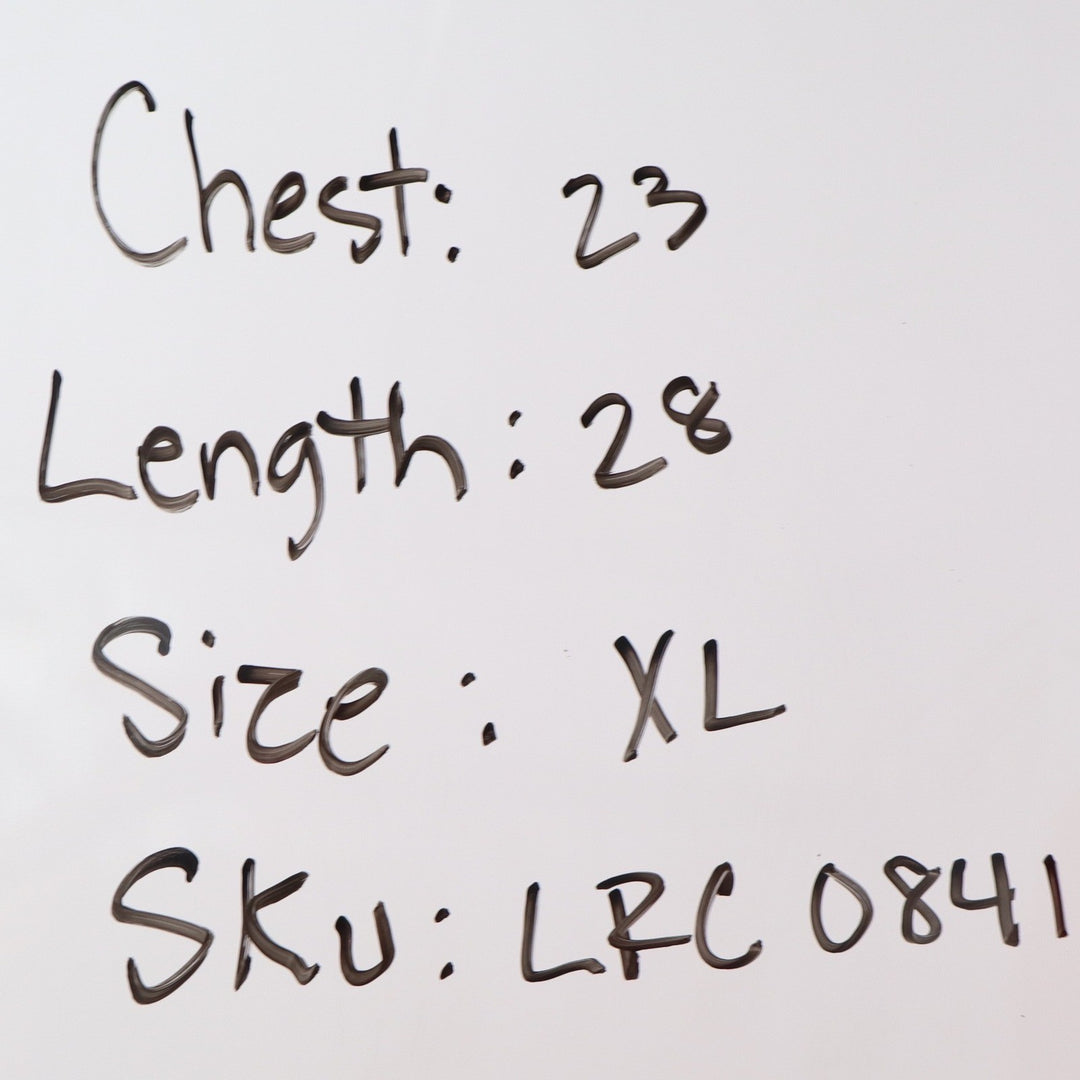 Chest: 23
Length: 28
Size: XL
SKU: LRC 0841